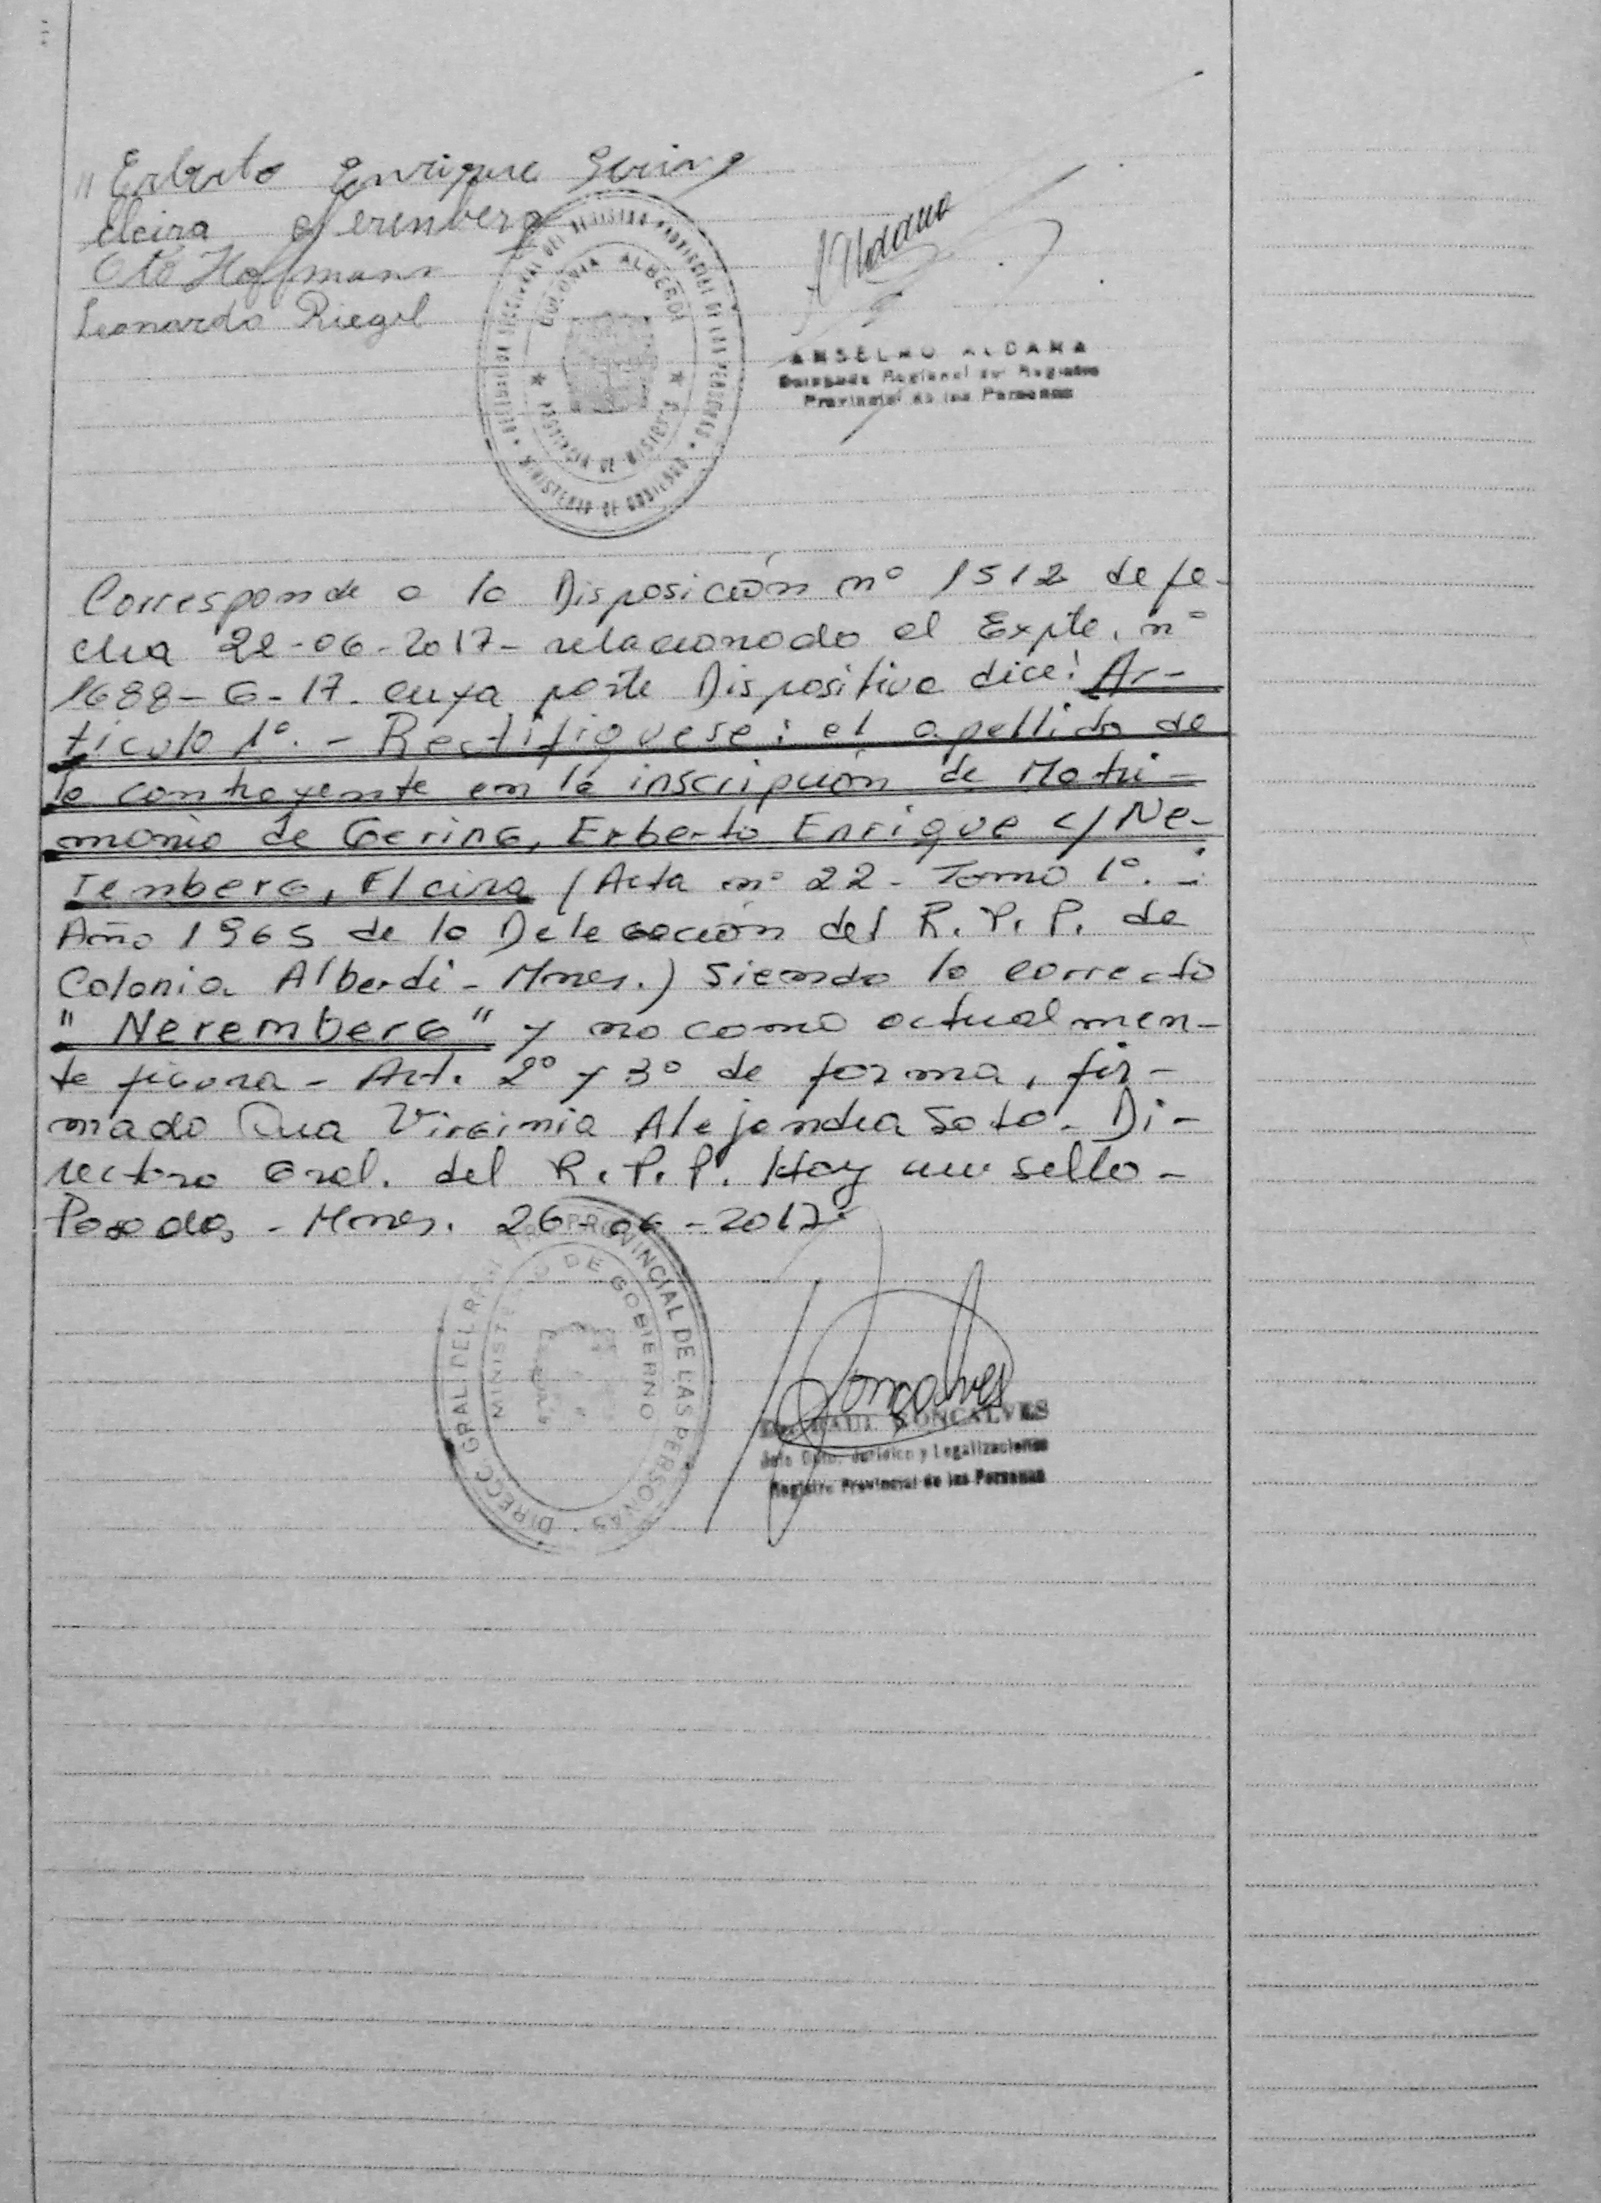 " Erberto Enrique Gering
Elcira Nerenberg
Oto Hoffmann
Leonardo Riegel
DELEGACION SECCIONAL DEL REGISTRO PROVINCIAL DE LAS PERSONAS
COLONIA ALBERDI
PROVINCIA DE MISIONES
MINISTERIO DE GOBIERNO
A Aldana
ANSELMO ALDANA
Delegado Regional del Registro
Provincial de las Personas
Corresponde a la Disposición nº 1512 de fe-
cha 22-06-2017- relacionado al Expte. nº
1688-G-17. cuya parte Dispositiva dice: Ar-
tículo 1º. - Rectifíquese: el apellido de
la contrayente en la inscripción de Matri-
monio de Gering, Erberto Enrique c/ Ne-
remberg, Elcira (Acta nº 22 - Tomo 1º. -
Año 1965 de la Delegación del R. P. P. de
Colonia Alberdi - Mnes.) siendo lo correcto
" Neremberg" y no como actualmen-
te figura - Art. 2º y 3º de forma, fir-
mado Dra Virginia Alejandra Soto - Di-
rectora Gral. del R. P. P. Hay un sello -
Posadas, - Mnes. 26-06-2017
DIRECC. GRAL. DEL PROVINCIAL DE LAS PERSONAS
MINISTERIO DE GOBIERNO
Goncalves
RAUL GONCALVES
Jefe Dpto. Jurídico y Legalizaciones
Registro Provincial de las Personas